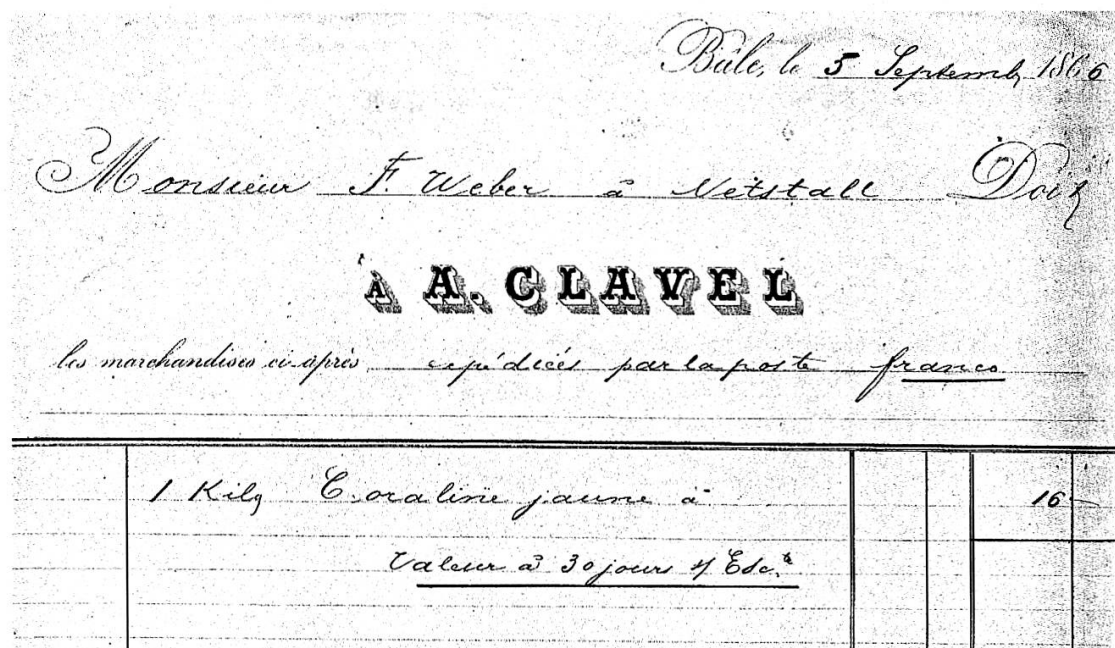 Bâle, le 5 Septemb 1866
Monsieur F. Weber à Netstall Doit
À A. CLAVEL
les marchandises ci-après expédiées par la poste franco
1 Kilg Coraline jaune à 16 —
Valeur à 30 jours s/ Esc.te